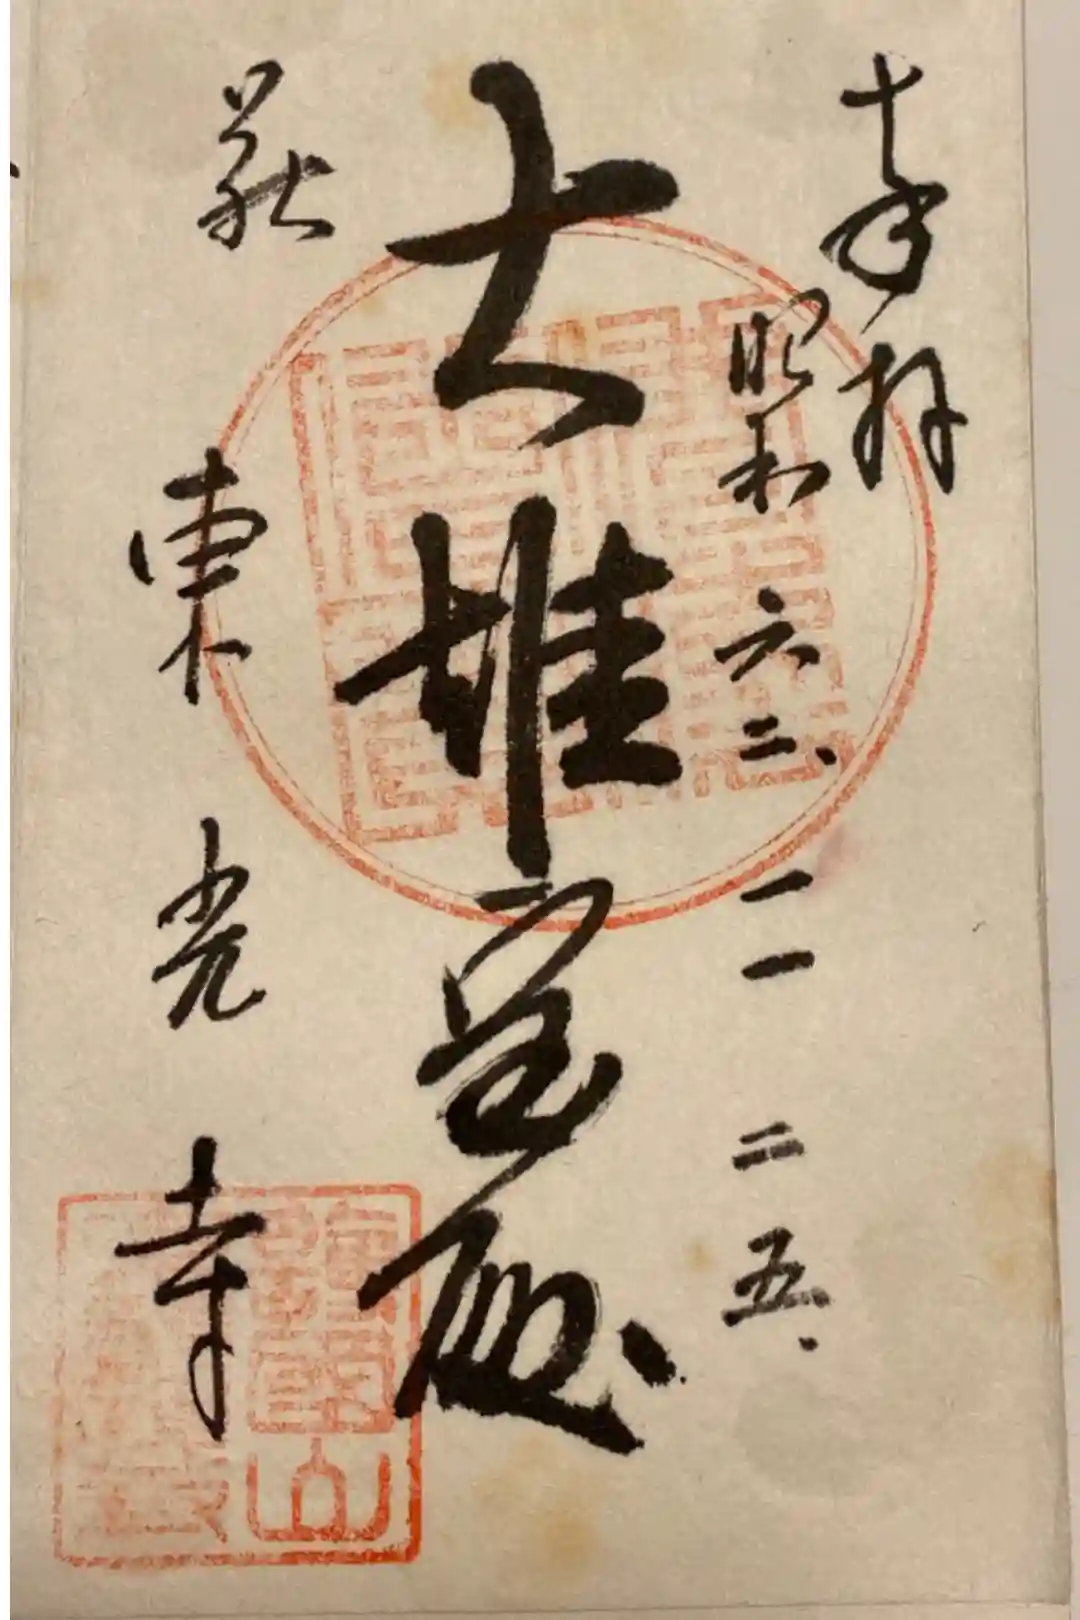 奉拝
昭和六二、一一 二五、
大雄宝殿
萩
東光寺
護國山